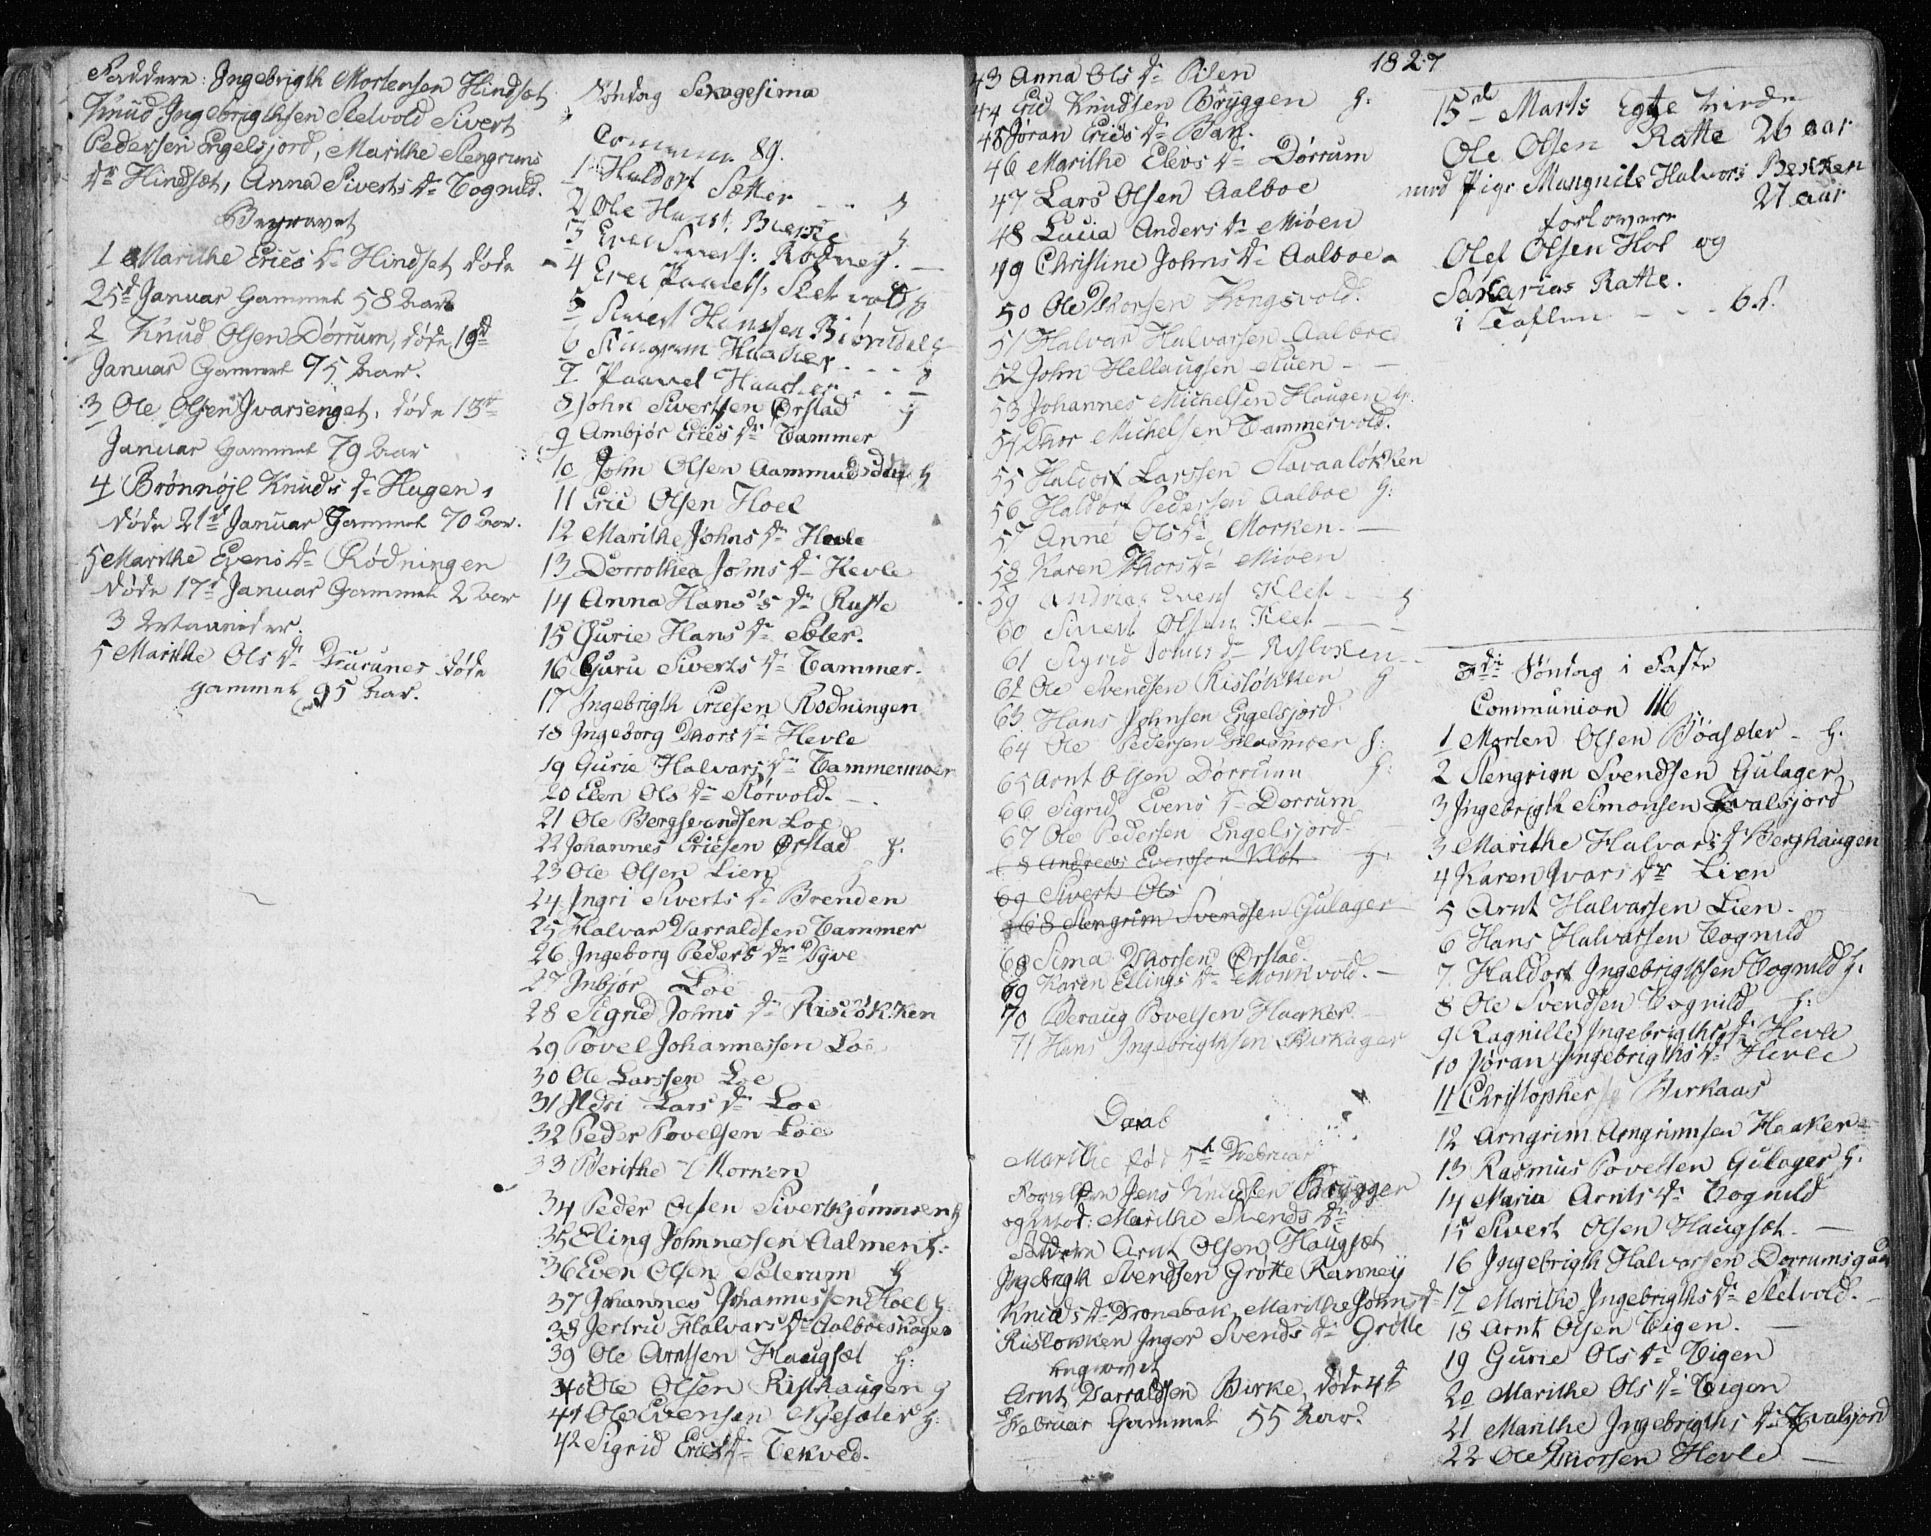 Faddere: Ingebrigth Mortensen Hindsæt
Knud Ingebrigthsen Sletvold Sivert
Pedersen Engelsjord, Marithe Stengrims
Dr Hindsæt, Anna Siverts Dr Vognild.
Begravet
1 Marithe Erics Dr Hindset døde
25d Januar Gammel 58 Aar
2 Knud Olsen Dørrum, døde 19d
Januar Gammel 75 Aar.
3 Ole Olsen Ivarsenget, døde 13d
Januar Gammel 79 Aar
4 Brønnøjl Knuds Dr Hugen,
døde 21d Januar Gammel 70 Aar.
5 Marithe Evens Dr Rødningen
døde 17d Januar Gammel 2 Aar
3 Maaneder.
5 Marithe Ols Dr døde
gammel 95 Aar.
Søndag Sexagesima
Commun. 89.
1 Haldort Sætter - - - h
2 Ole
3 Sivert: Rødnej. -
4 Paavels: Sletvold h
5 Sivert Hanssen Biørndal h
6 Stengrim Haaker - - - h
7 Paavel Haaker - -
8 John Sivertsen Ørstad h
9 Ambjør Erics Dr Tammer
10 John Olsen h
11 Eric Olsen Hoel
12 Marithe Johns Dr Hevle
13 Dorrothea Johns Dr Hevle
14 Anna Hans's Dr Ruste
15 Gurie Hans Dr Sæter.
16 Guru Siverts Dr Tammer.
17 Ingebrigth Ericsen Rødningen
18 Ingeborg Thors Dr Hevle
19 Gurie Halvars Dr Tammermoen
20 Elen Ols Dr Storvold. -
21 Ole Bergsvendsen Loe
22 Johannes Ericsen Ørstad h:
23 Ole Olsen Lien
24 Ingri Siverts Dr Brenden
25 Halvar Harraldsen Tammer
26 Ingeborg Peders Dr Dyve
27 Inbjør Loe
28 Sigrid Johns Dr Risløkken
29 Povel Johannessen Loe
30 Ole Larssen Loe
31 Lars Dr Loe
32 Peder Povelsen Loe
33 Berithe Morken
34 Peder Olsen Sivertsjømoen h
35 Eling Johnnessen Aalmen h:
36 Even Olsen Sæterum h
37 Johannes Johannessen Hoel h:
38 Jertru Halvars Dr Aalboeskogen
39 Ole Arntsen Haugsæt h:
40 Ole Olsen Risthaugen h
41 Ole Evensen Nysæter h:
42 Sigrid Erics Dr Tekved.
1827
43 Anna Ols Dr Pilen
44 Eric Knudsen Brÿggen h:
45 Jøran Erics Dr Bak.
46 Marithe Elevs Dr Dørrum
47 Lars Olsen Aalboe
48 Lucia Anders Dr Miøen
49 Christine Johns Dr Aalboe
50 Ole Thorsen Kongsvold.
51 Halvar Halvarsen Aalboe
52 John Hellaugsen Auen - -
53 Johannes Michelsen Haugen h:
54 Thor Michelsen Tammervold.
55 Haldort Larssen Stavaaløkken
56 Haldort Pedersen Aalboe h:
57 Anne Ols Dr Morken. -
58 Karen Thors Dr Miøen
59 Andrias Evens Klet - - h
60 Sivert Olsen Klet - - -
61 Sigrid Johns Dr Risløken - -
62 Ole Svendsen Risløkken h
63 Hans Johnsen Engelsjord
64 Ole Pedersen h:
65 Arnt Olsen Dørrum h:
66 Sigrid Evens Dr Dørrum
67 Ole Pedersen Engelsjord
68 Andreas Evensen Klet h:
69 Sivert Ols
68 Stengrim Svendsen Gulager
68 Sima Thorsen Ørstad.
69 Karen Ellings Dr Munkvold. -
70 Beraug Povelsen Haaker. -
71 Hans Ingebrigthsen Birkager
Daab
Marithe fød 5d Februar
Forældre Jens Knudsen Brygger
og Marithe Svends Dr
Faddere Arnt Olsen Haugsæt
Ingebrigth Svendsen Grøtte Ranneÿ
Knuds Dr Marithe Johns Dr
Risløkken Inger Svends Dr Grøtte
Begravet
Arnt Harraldsen Birke, døde 4d
Februar Gammel 55 Aar.
15d Marts Egte viede
Ole Olsen Ratte 26 aar
med Pige Mungnile Halvors Bekken
21 aar
forlovere
Olef Olsen Hol og
Sakarias Ratte.
i Taflen - - - 6 S.
3die Søndag i Faste
Communion 116
1 Morten Olsen Bøasæter - h:
2 Stengrim Svendsen Gulager
3 Ingebrigth Simonsen Tvalsjord
3 Marithe Halvars Dr Berghaugen
4 Karen Ivars Dr Lien
5 Arnt Halvarsen Lien.
6 Hans Halvarsen Vognild
7 Haldort Ingebrigthsen Vognild h:
8 Ole Svendsen Vognild h:
9 Ragnille Ingebrigths Dr Hevle
10 Jøran Ingebrigths Dr Hevle
11 Christopher Birkaas
12 Arngrim Arngrimsen Haaker
13 Rasmus Povelsen Gulager h:
14 Maria Arnts Dr Vognild
15 Sivert Olsen Haugsæt. -
16 Ingebrigth Halvarsen Dørrumsgaar
17 Marithe Ingebrigths Dr Sletvold. -
18 Arnt Olsen Vigen. -
19 Gurie Ols Dr Vigen
20 Marithe Ols Dr Vigen
21 Marithe Ingebrigths Dr Tvalsjord
22 Ole Thorsen Hevle -